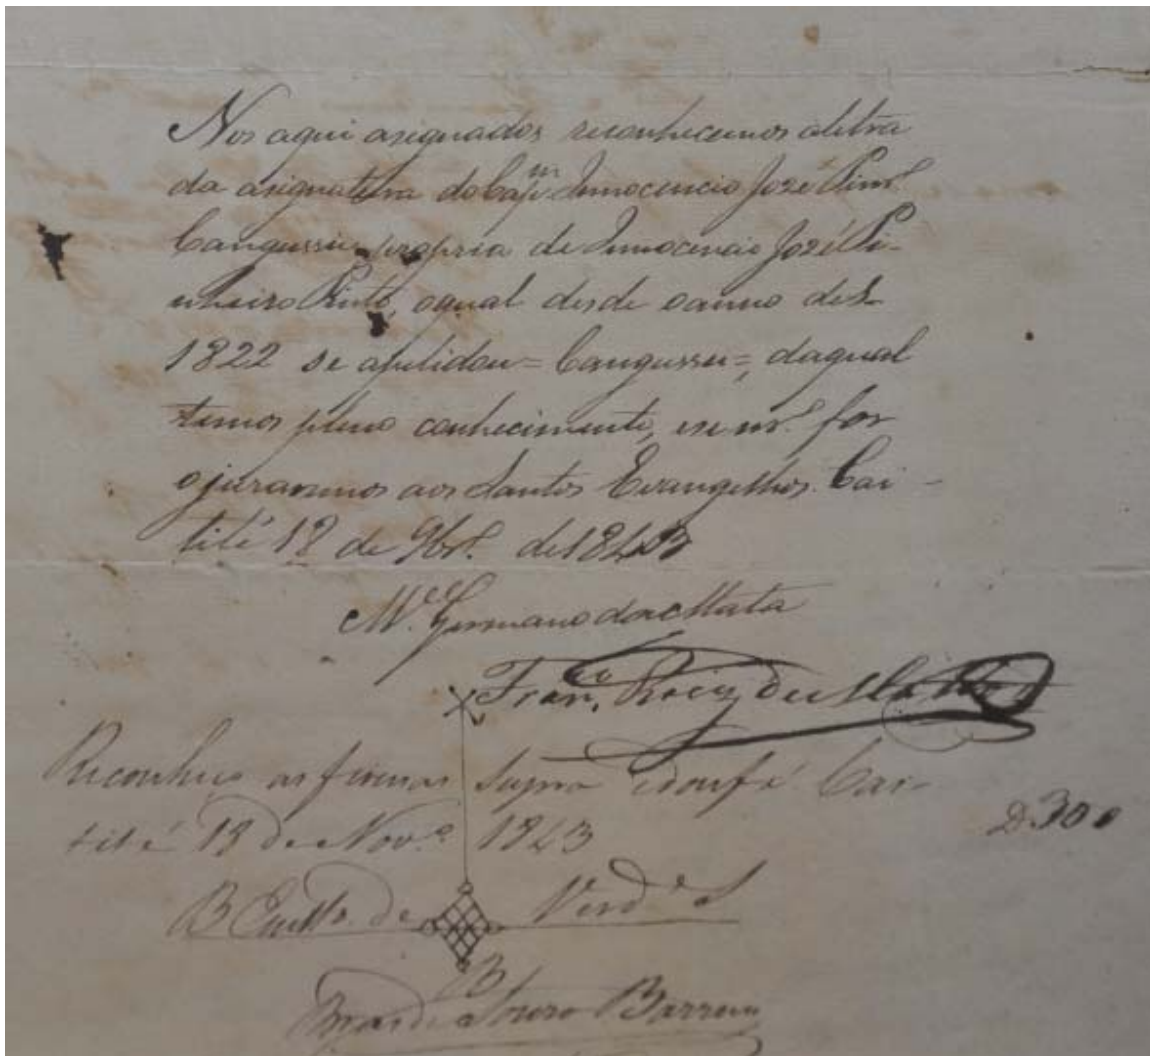 Nos aqui asignados reconhecemos aletra
da asignatura do Cap.m Innocencio José Pinr.o
Cangussu propria de Innocencio José Pi-
nheiro Pinto, oqual desde oanno de
1822 se apelidou = Cangussu =, daqual
temos pleno conhecimento, ese for
ojuraremos aos Santos Evangelhos. Cai-
tité 18 de 9br.o de 1843
M.el Germano da Matta
Fran.co Roiz de
Reconheço as firmas supra edoufé. Cai-
tité 18 de Nov.o 1843
Em tt.o de Verd.e
Souza Barros
300